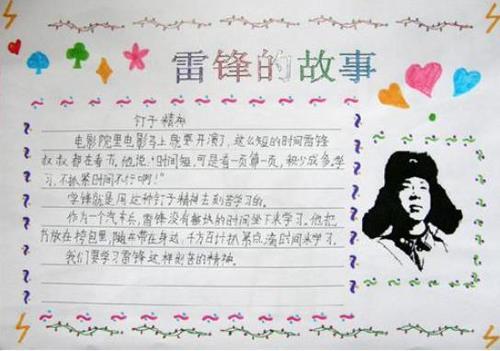 雷锋的故事
钉子精神
电影院里电影马上就要开演了，这么短的时间雷锋
叔叔都在看书。他说：“时间短，可是看一页算一页，积少成多。学
习，不抓紧时间不行啊！”
雷锋就是用这种钉子精神去刻苦学习的。
作为一个汽车兵，雷锋没有整块的时间坐下来学习。他把
书放在挎包里，随车带在身边，千方百计抓紧点滴时间来学习。
我们要学习雷锋这样刻苦的精神。